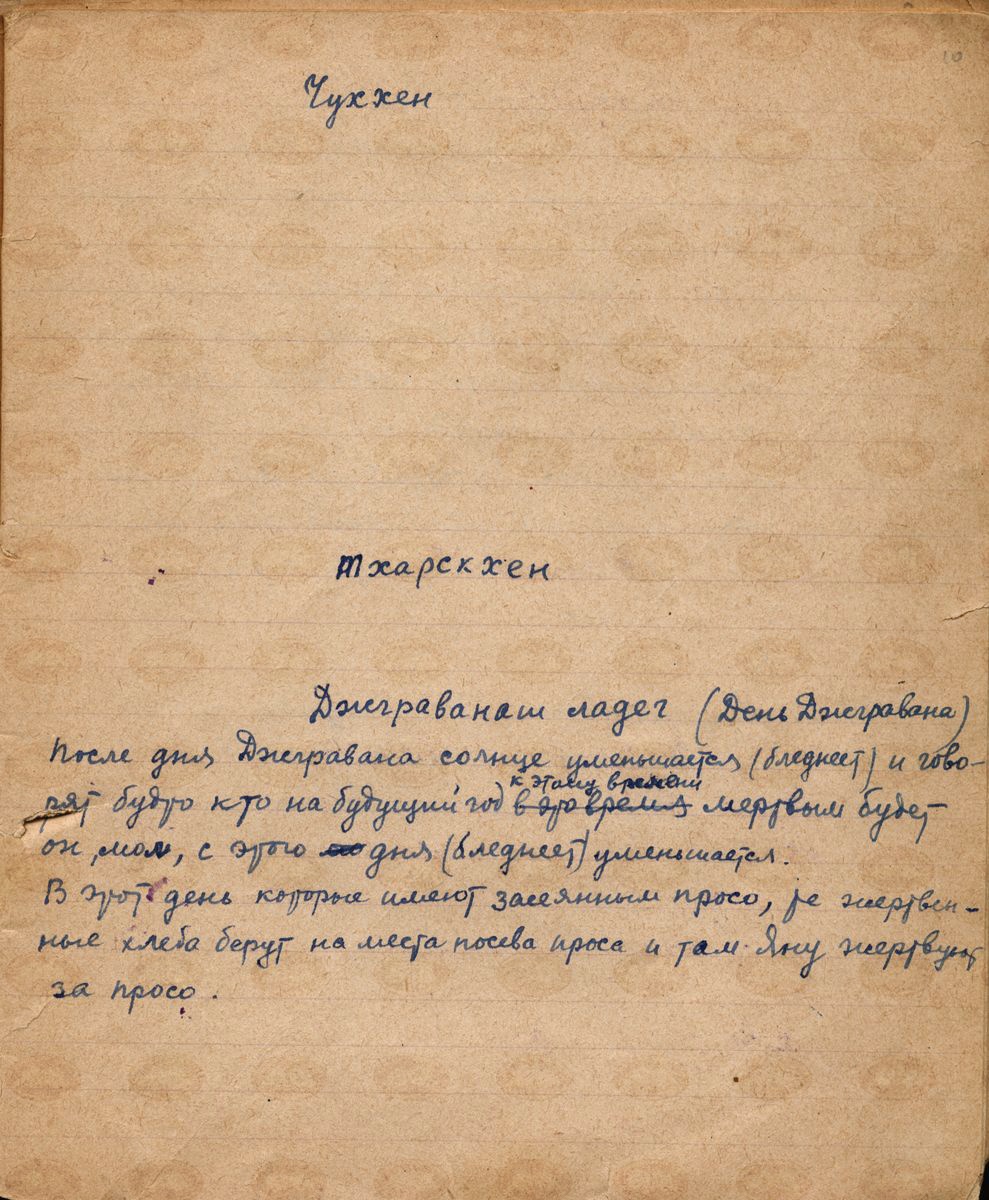 10
Чукхен
Тхарскхен
Джграванаш ладег (День Джгравана)
После дня Джгравана солнце уменьшается (бледнеет) и гово-
к этому времени
рят будто кто на будущий год в это время мертвым будет
он, мол, с этого дня (бледнеет) уменьшается.
В этот день которые имеют засеянным просо, те жертвен-
ные хлеба берут на места посева проса и там Яну жертвуют
за просо.